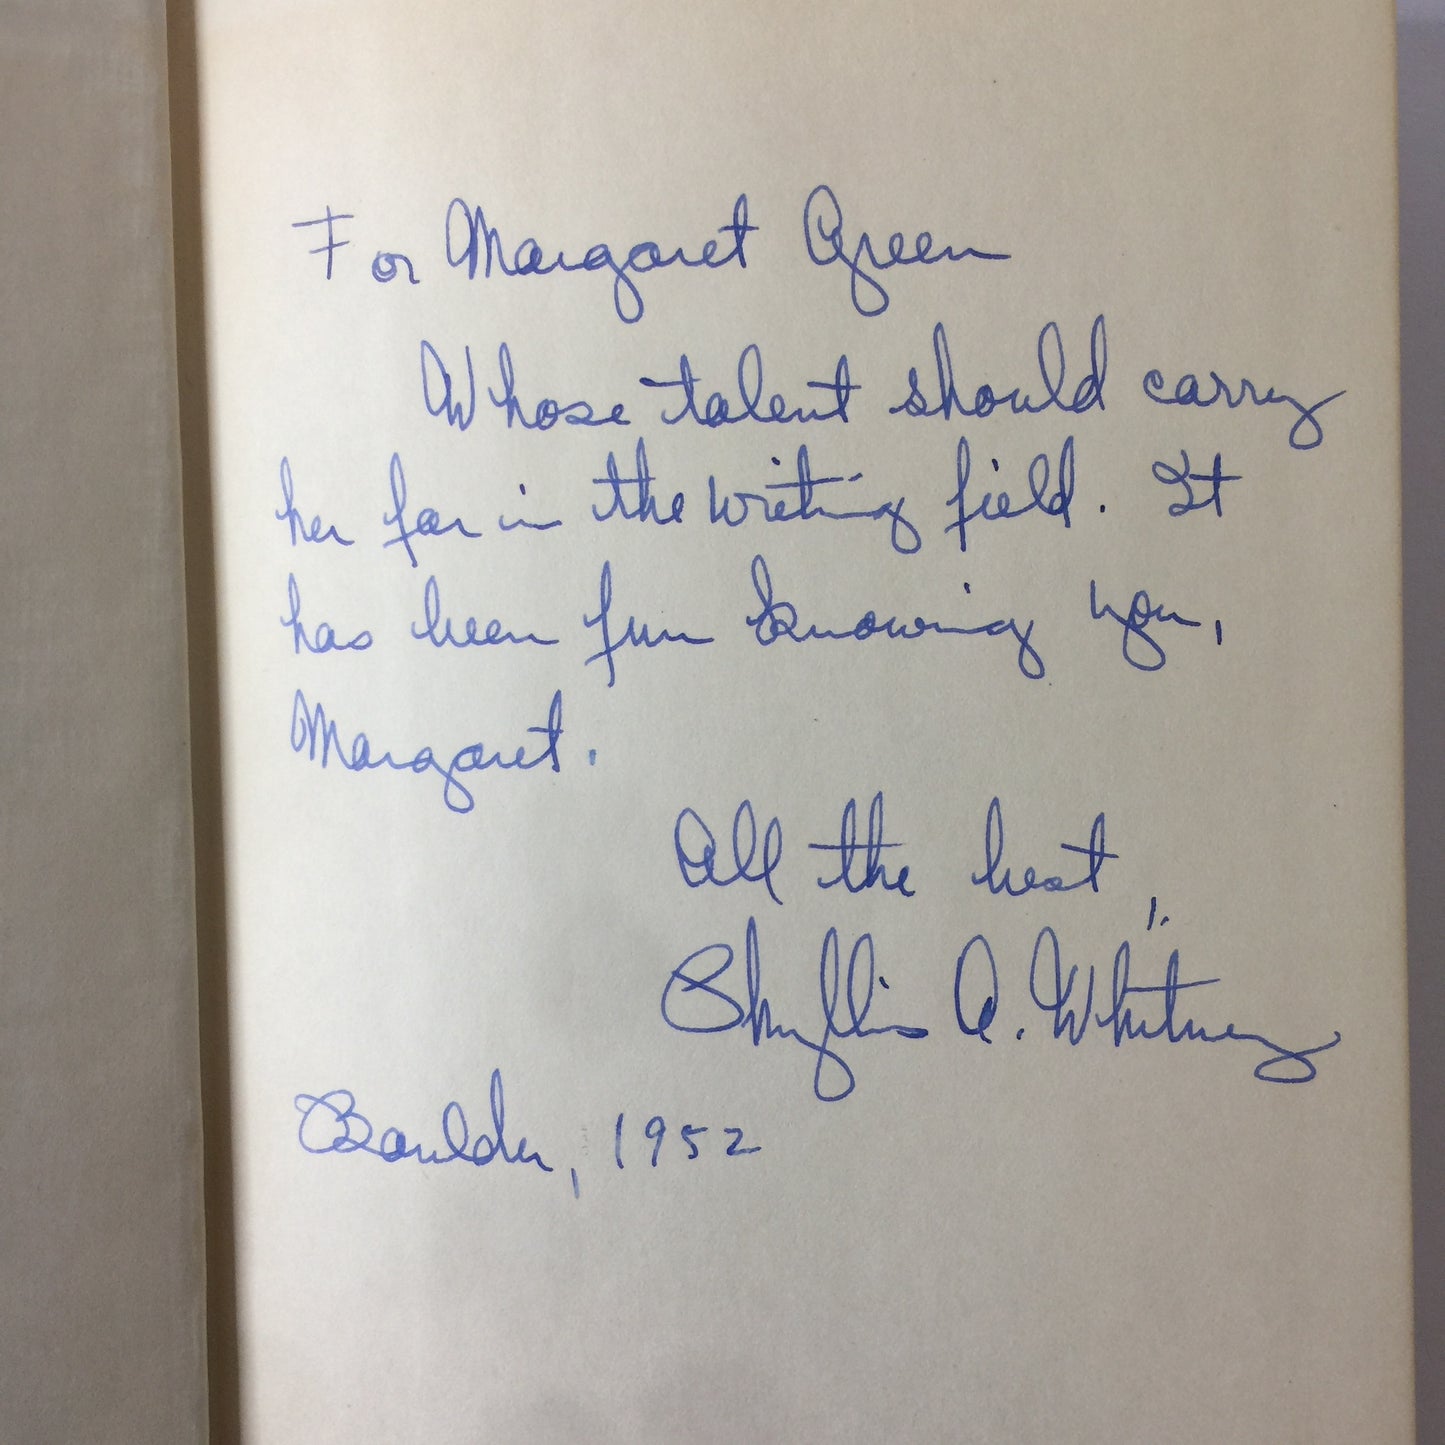 For Margaret Green
Whose talent should carry
her far in the writing field. It
has been fun knowing you,
Margaret.
All the best,
Phyllis A. Whitney
Boulder, 1952